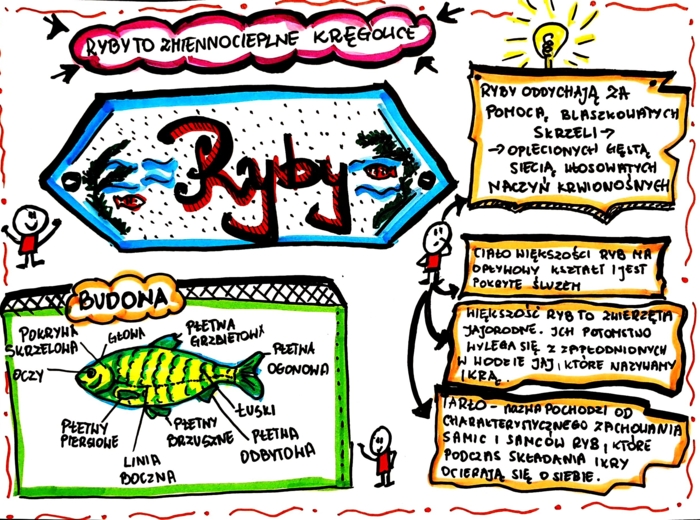 RYBY TO ZMIENNOCIEPLNE KRĘGOWCE
Ryby
RYBY ODDYCHAJĄ ZA
POMOCĄ BLASZKOWATYCH
SKRZELI →
→ OPLECIONYCH GĘSTĄ
SIECIĄ WŁOSOWATYCH
NACZYŃ KRWIONOŚNYCH
CIAŁO WIĘKSZOŚCI RYB MA
OPŁYWOWY KSZTAŁT I JEST
POKRYTE ŚLUZEM
WIĘKSZOŚĆ RYB TO ZWIERZĘTA
JAJORODNE. ICH POTOMSTWO
WYLĘGA SIĘ Z ZAPŁODNIONYCH
W WODZIE JAJ, KTÓRE NAZYWAMY
IKRĄ.
TARŁO - NAZWA POCHODZI OD
CHARAKTERYSTYCZNEGO ZACHOWANIA
SAMIC I SAMCÓW RYB, KTÓRE
PODCZAS SKŁADANIA IKRY
OCIERAJĄ SIĘ O SIEBIE.
BUDOWA
POKRYWA
SKRZELOWA
GŁOWA
PŁETWA
GRZBIETOWA
PŁETWA
OGONOWA
OCZY
PŁETWY
PIERSIOWE
LINIA
BOCZNA
PŁETWY
BRZUSZNE
ŁUSKI
PŁETWA
ODBYTOWA